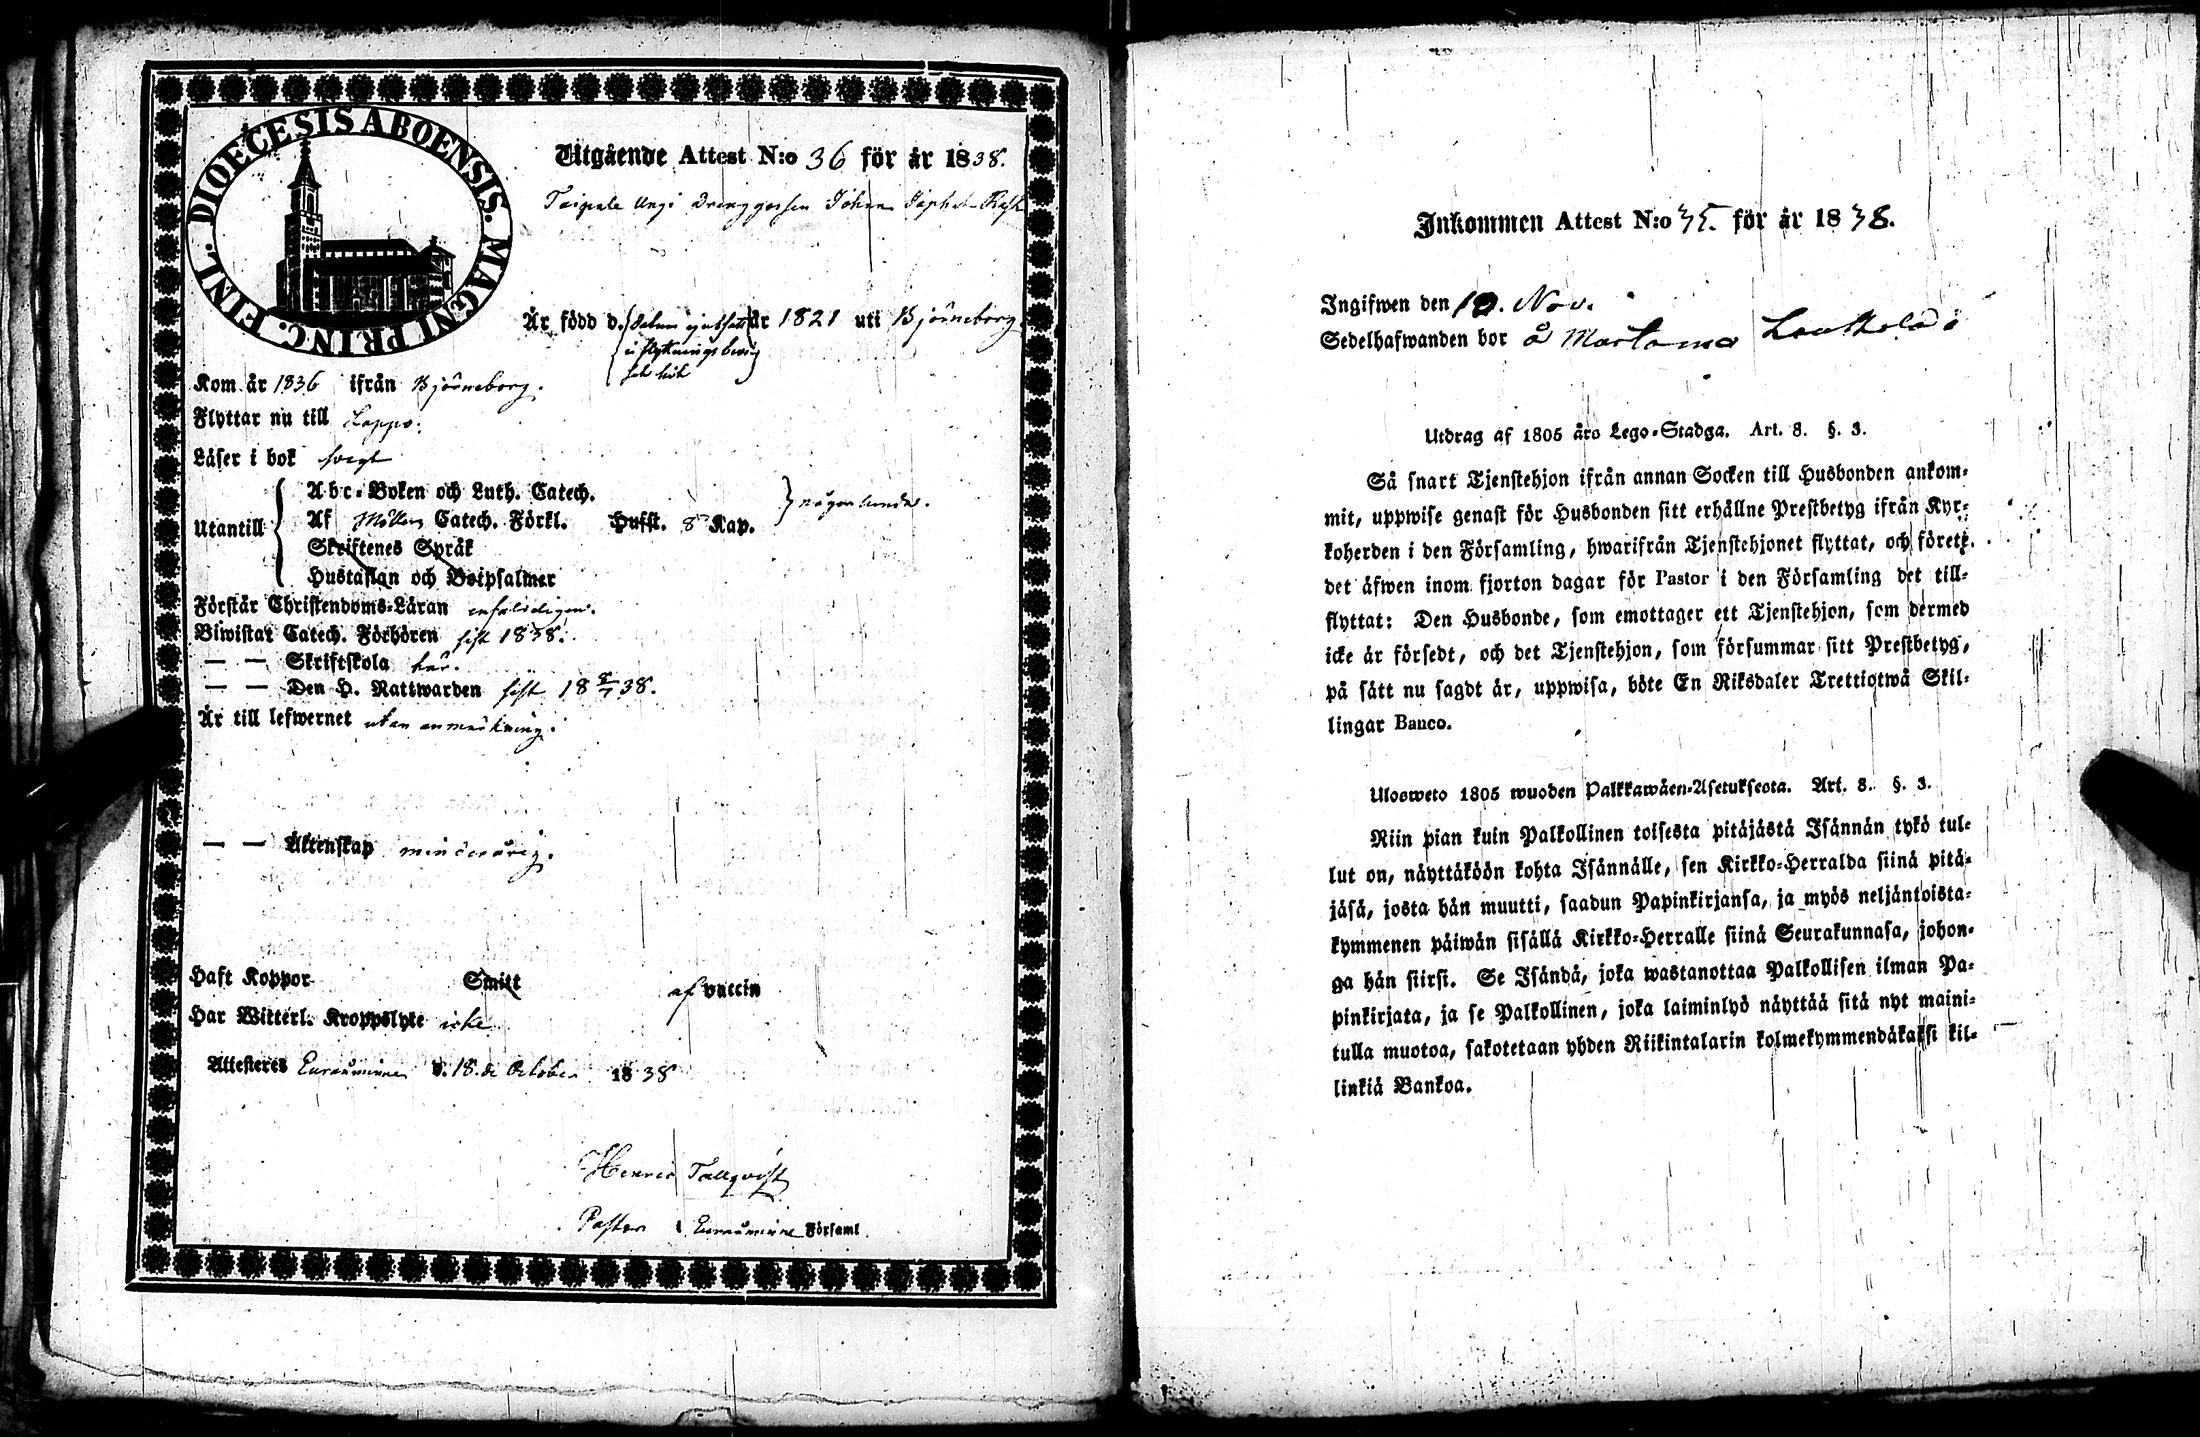 DIOECESIS ABOENSIS. MAGNI PRINC. FINL.
Utgående Attest N:o 36 för år 1838.
Taipale Johan
Är född d. (datum ej utsatt år 1821 uti Björneborg
i flyttningsbetyg
Kom år 1836 ifrån Björneborg.
Flyttar nu till Lappo.
Läser i bok svagt
Utantill
Abc-Boken och Luth. Catech.
Af Möllers Catech. Förkl. Hufst. 8 Kap.
någorlunda.
Skriftenes Språk
Hustaflan och Botpsalmer
Förstår Christendoms-Läran enfaldigen.
Biwistat Catech. Förhören sist 1838.
— — Skriftskola här.
— — Den H. Nattwarden sist 18 8/7 38.
Är till lefwernet utan anmärkning.
— — Äktenskap minderårig.
Haft Koppor Smitt af vaccin
Har Witterl. Kroppslyte icke
Attesteres Euraåminne d. 18.de October 1838
Henric Tallqvist
Pastor i Euraåminne Församl.
Inkommen Attest N:o 35. för år 1838.
Ingifwen den 10. Nov.
Sedelhafwanden bor å
Utdrag af 1805 års Lego-Stadga. Art. 8. §. 3.
Så snart Tjenstehjon ifrån annan Socken till Husbonden ankom-
mit, uppwise genast för Husbonden sitt erhållne Prestbetyg ifrån Kyr-
koherden i den Församling, hwarifrån Tjenstehjonet flyttat, och förete
det äfwen inom fjorton dagar för Pastor i den Församling det till-
flyttat: Den Husbonde, som emottager ett Tjenstehjon, som dermed
icke är försedt, och det Tjenstehjon, som försummar sitt Prestbetyg,
på sätt nu sagdt är, uppwisa, böte En Riksdaler Trettiotwå Skil-
lingar Banco.
Ulosweto 1805 wuoden Palkkawäen-Asetuksesta. Art. 8. §. 3.
Niin pian kuin Palkollinen toisesta pitäjästä Isännän tykö tul-
lut on, näyttäköön kohta Isännälle, sen Kirkko-Herralda siinä pitä-
jäsä, josta hän muutti, saadun Papinkirjansa, ja myös neljäntoista-
kymmenen päiwän sisällä Kirkko-Herralle siinä Seurakunnasa, johon-
ga hän siirsi. Se Isändä, joka wastanottaa Palkollisen ilman Pa-
pinkirjata, ja se Palkollinen, joka laiminlyö näyttää sitä nyt maini-
tulla muotoa, sakotetaan yhden Riikintalarin kolmekymmendäkaksi kil-
linkiä Bankoa.